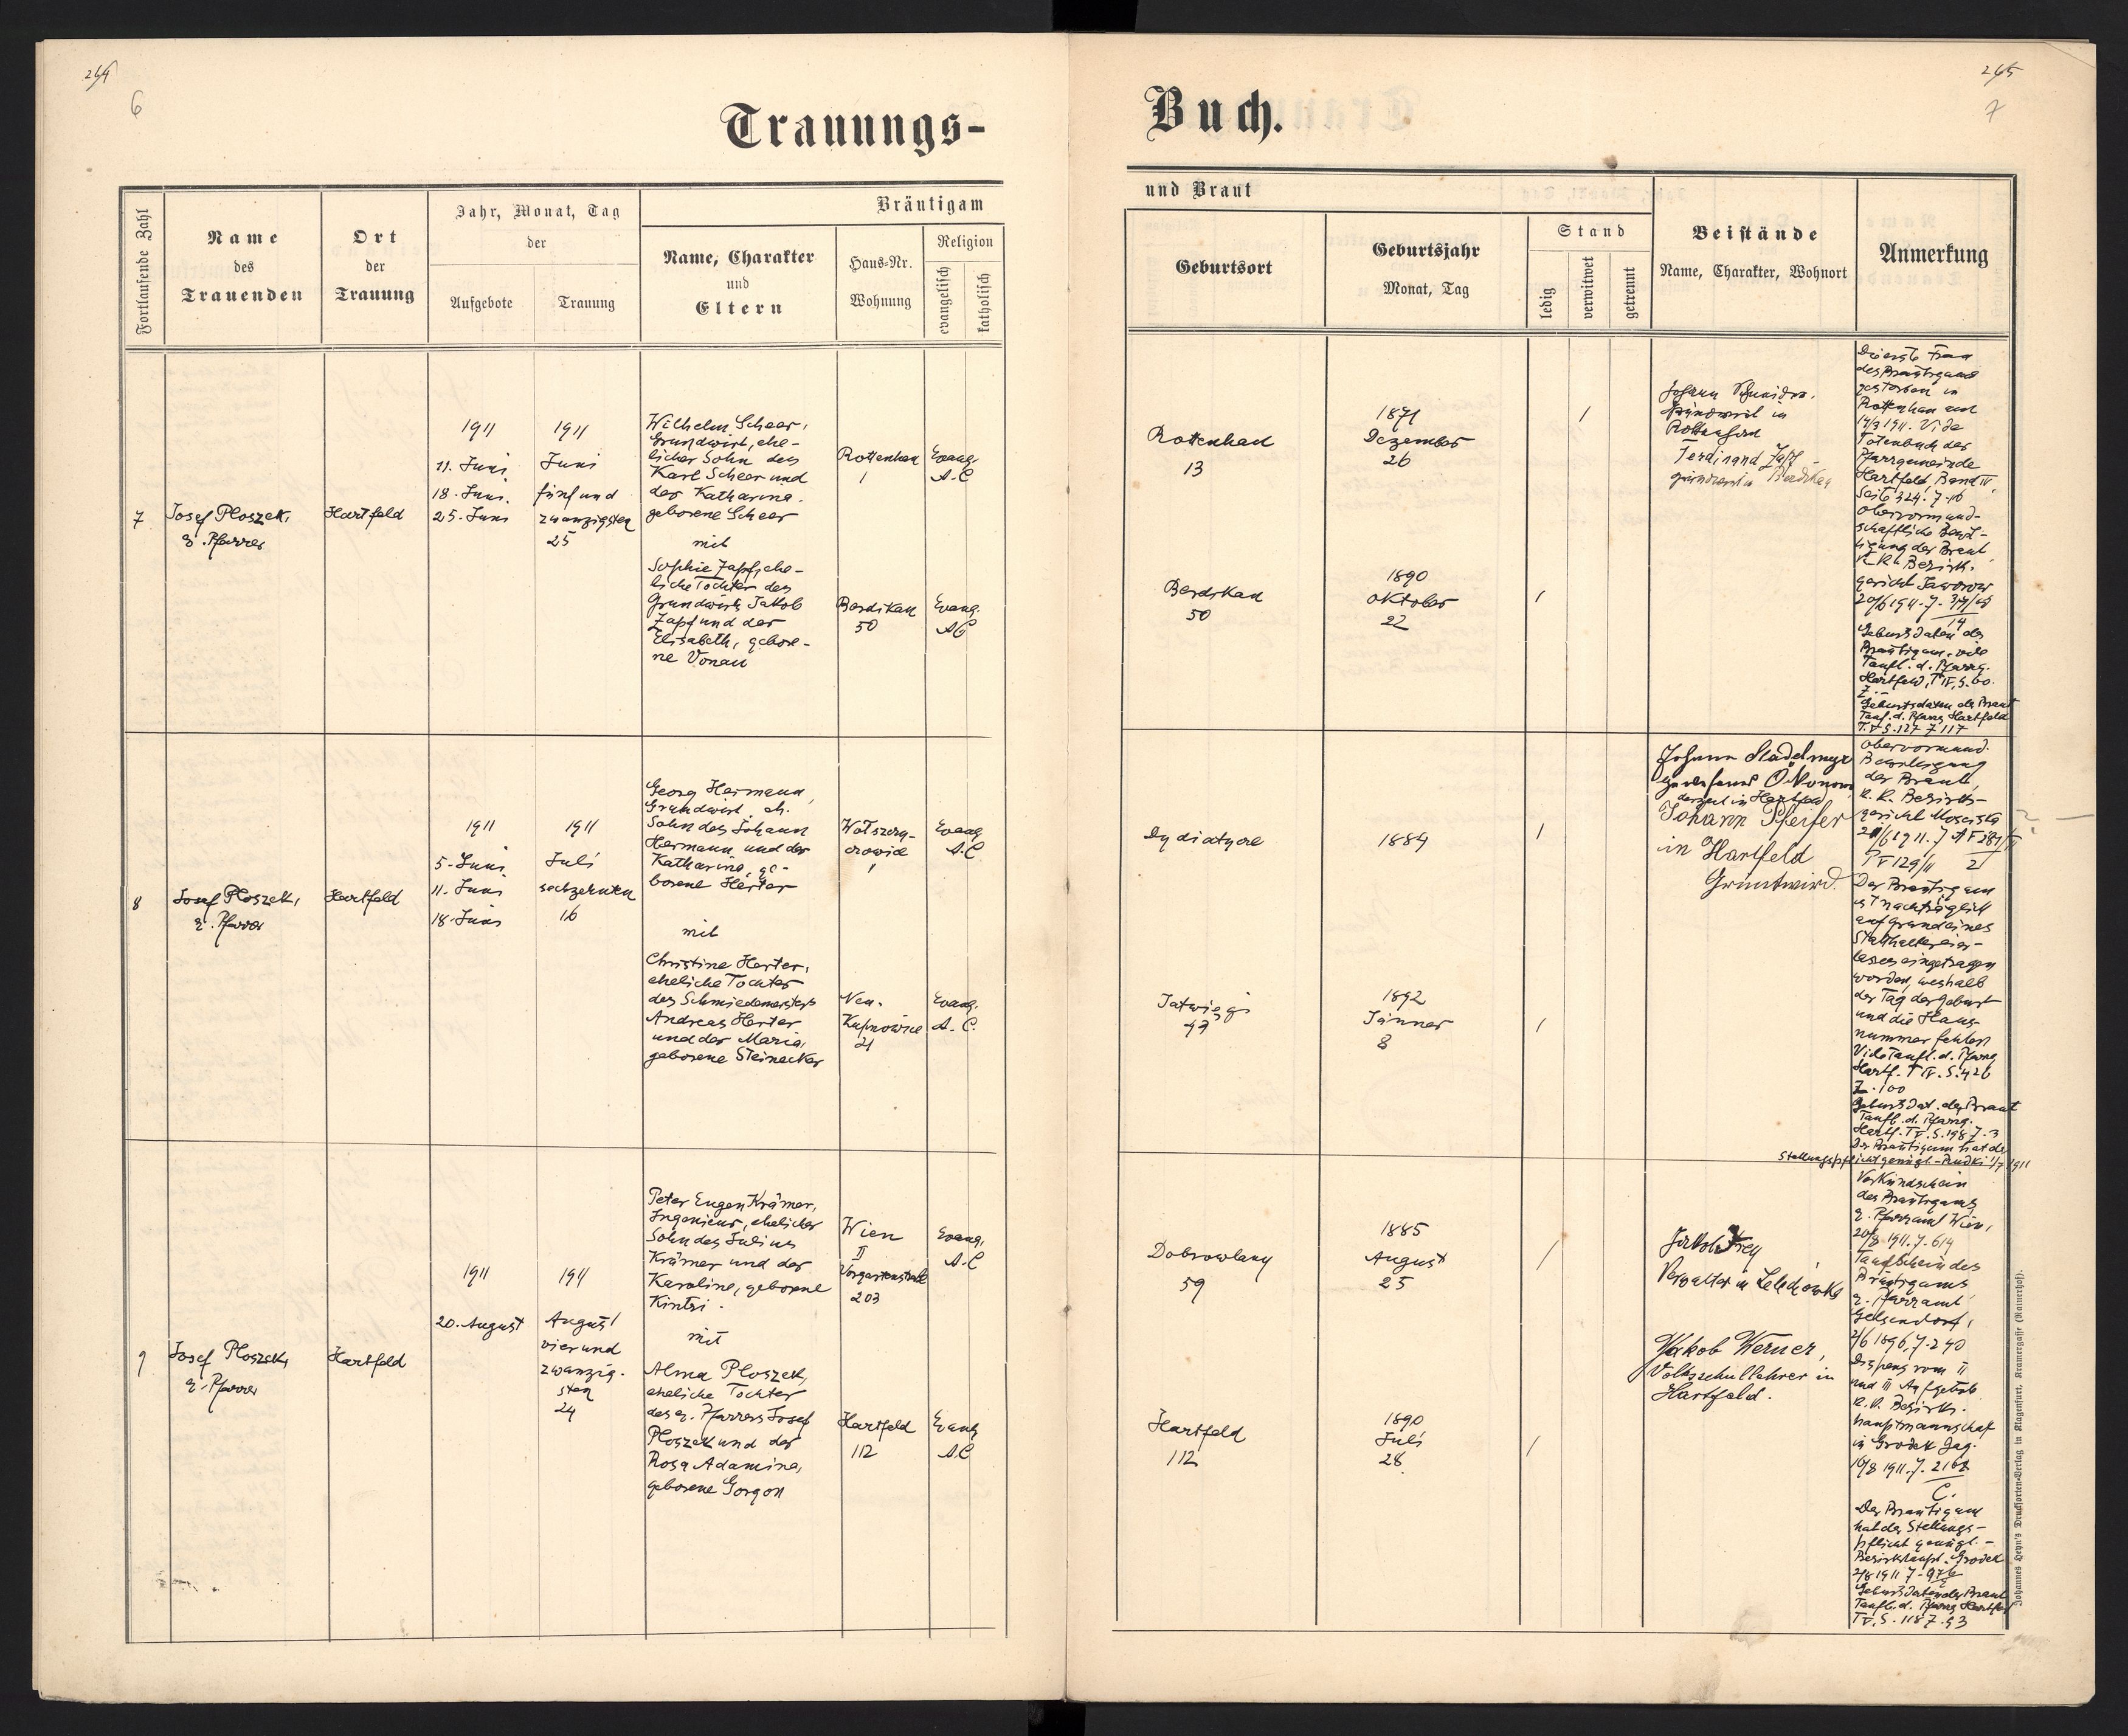 264
6
Trauungs-
Fortlaufende Zahl
Name
des
Trauenden
Ort
der
Trauung
Jahr, Monat, Tag
der
Aufgebote
Trauung
Bräutigam
Name, Charakter
und
Eltern
Haus-Nr.
Wohnung
Religion
evangelisch
katholisch
7
Josef Ploszek,
e. Pfarrer
Hartfeld
1911
11. Juni
18. Juni.
25. Juni
1911
Juni
fünf und
zwanzigsten
25
Wilhelm Scheer,
Grundwirt, ehe-
licher Sohn des
Karl Scheer und
der Katharina,
geborene Scheer
mit
Sophie Zapf, ehe-
liche Tochter des
Grundwirts Jakob
Zapf und der
Elisabeth, gebore-
ne Vonau
Rottenhan
1
Evang.
A.C
Berdikau
50
Evang.
AC
8
Josef Ploszek,
e. Pfarrer
Hartfeld
1911
5. Juni
11. Juni
18. Juni
1911
Juli
sechzehnten
16
Georg Hermann,
Grundwirt, eh.
Sohn des Johann
Hermann und der
Katharina, ge-
borene Herter
mit
Christine Herter,
eheliche Tochter
des Schmiedemeisters
Andreas Herter
und der Maria,
geborene Steinecker
1
Evang.
A.C
Neu-
Kupnowice
21
Evang.
A. C.
9
Josef Ploszek,
e. Pfarrer
Hartfeld
1911
20. August
1911
August
vier und
zwanzig-
sten
24
Peter Eugen Krämer,
Ingenieur, ehelicher
Sohn des Julius
Krämer und der
Karoline, geborene
Kintzi.
mit
Alma Ploszek,
eheliche Tochter
des e. Pfarrers Josef
Ploszek und der
Rosa Adamina,
geborene Gorgon
Wien
II
Vorgartenstraße
203
Evang.
A.C
Hartfeld
112
Evang.
A.C
265
7
Buch.
und Braut
Geburtsort
Geburtsjahr
Monat, Tag
Stand
ledig
verwitwet
getrennt
Beistände
Name, Charakter, Wohnort
Anmerkung
Rottenhan
13
1871
Dezember
26
/
Johann Schneider,
Grundwirt in
Rottenhan
Ferdinand Zapf
Grundwirt in Berdikau
Die erste Frau
des Bräutigams
gestorben in
Rottenhan am
14/3 1911. Vide
Totenbuch der
Pfarrgemeinde
Hartfeld, Band IV,
Seite 324. Z. 16
Obervormund-
schaftliche Bewil-
ligung der Braut,
K. K. Bezirks-
gericht Jaworow
20/6 1911. Z.
14
Geburtsdaten des
Bräutigams, vide
Taufb. d. Pfarrg.
Hartfeld, T IV, S. 60.
Z. -
Geburtsdaten der Braut
Taufb. d. Pfarrg. Hartfeld
T. V S. 127 Z 117
Berdikau
50
1890
Oktober
22
/
Dydiatycze
1884
/
Johann Stadelmayr
Ökonom
derzeit in Hartfeld
Johann Pfeifer
in Hartfeld
Gruntwird.
Obervormund.
Bewilligung
der Braut,
K. K. Bezirks-
gericht Mosciska
P V 129/11 2
Der Bräutigam
ist nachträglich
auf Grund eines
Statthaltereier-
lasses eingetragen
worden, weshalb
der Tag der Geburt
und die Haus-
nummer fehlen
Vide Taufb. d. Pfarrg
Hartf. T IV. S. 426
Z. 100
Geburtsdat. der Braut
Taufb. d. Pfarrg.
Hartf. T V. S. 198 Z. 3
Der Bräutigam hat der
Stellungspflicht genügt. - Rudki 1/7 1911
Jatwiegi
47
1892
Jänner
8
/
Dobrowlany
59
1885
August
25
/
Jakob Frey
Verwalter in
Jakob Werner,
Volksschullehrer in
Hartfeld.
Verkündschein
des Bräutigams
e. Pfarramt Wien,
20/8 1911. Z. 614
Taufschein des
Bräutigams
e. Pfarramt
Gelsendorf,
2/6 1896, Z. 240
Dispens vom II
und III Aufgebote
K. K. Bezirks-
hauptmannschaft
in Grodek Jag.
16/8 1911. Z. 2168
C.
Der Bräutigam
hat der Stellungs-
pflicht genügt. -
Bezirkshaupt. Grodek
2/8 1911 Z.
Geburtsdaten der Braut
Taufb. d. Pfarrg Hartfeld
T V, S. 118 Z. 93
Hartfeld
112
1890
Juli
28
/
Johannes Heyn's Drucksorten-Verlag in Klagenfurt, Kramergasse (Rainerhof).